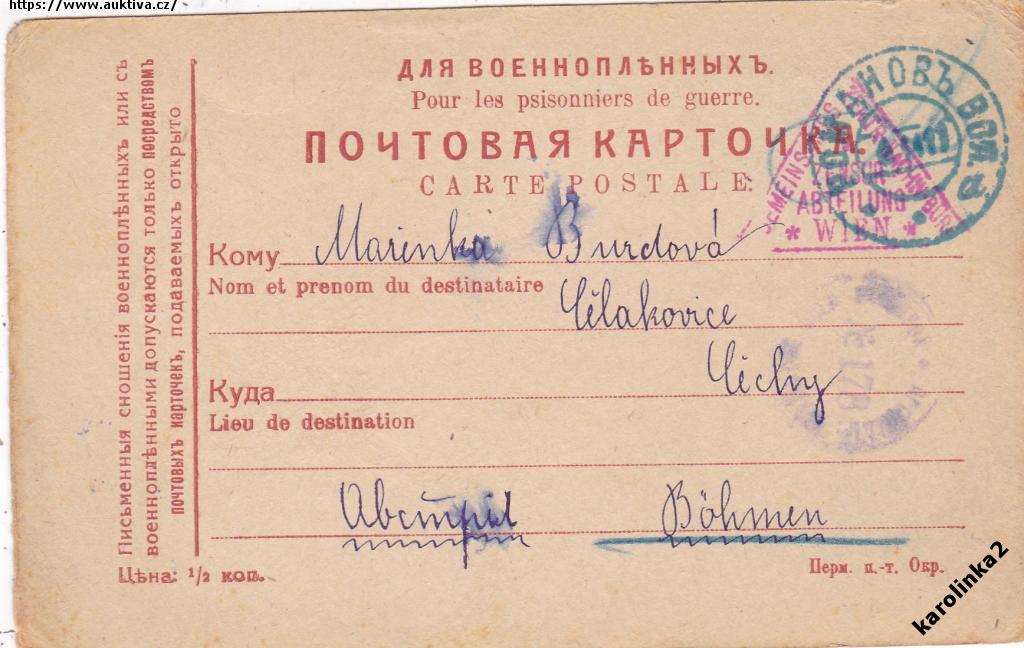 https://www.auktiva.cz/
ДЛЯ ВОЕННОПЛѢННЫХЪ.
Pour les psisonniers de guerre.
ПОЧТОВАЯ КАРТОЧКА.
CARTE POSTALE.
ABTEILUNG
* WIEN *
Кому Marinka Burdová
Nom et prenom du destinataire
Čelakovice
Куда Čechy
Lieu de destination
Австрія Böhmen
Цѣна: 1/2 коп.
Перм. п.-т. Окр.
Письменныя сношенія военноплѣнныхъ или съ
военноплѣнными допускаются только посредствомъ
почтовыхъ карточек, подаваемыхъ открыто
karolinka2